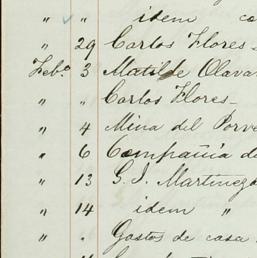 " " idem co
" 29 Carlos Flores-
Feb.o 3 Matilde Olava
" " Carlos Flores-
" 4 Mina del Porve
" 6 Compañia de
" 13 G. J. Martinez
" 14 idem "
" " Gastos de casa